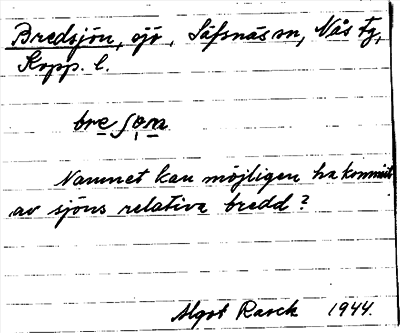 Bredsjön, sjö, Säfsnäs sn, Nås tg,
Kopp. l.
bre ʃo̜n
Namnet kan möjligen ha kommit
av sjöns relativa bredd?
Algot Rasck 1944.